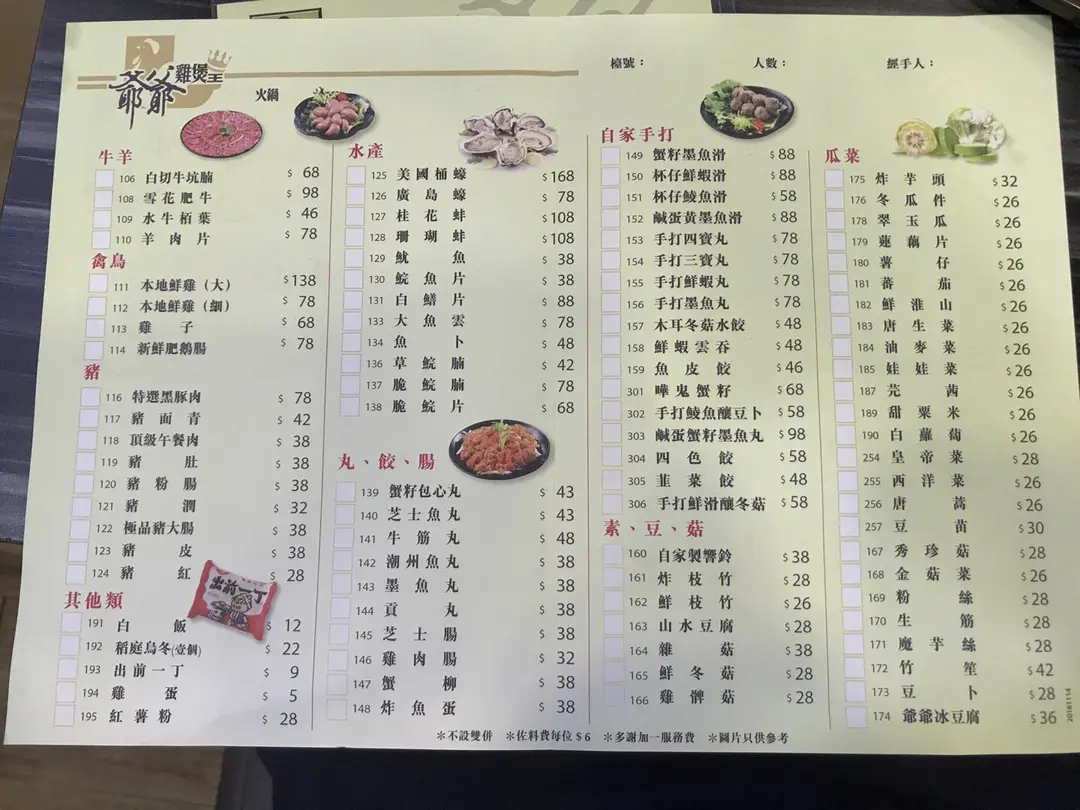 爺爺
雞煲王
火鍋
檯號：
人數：
經手人：
牛羊
106 白切牛坑腩 $ 68
108 雪花肥牛 $ 98
109 水牛栢葉 $ 46
110 羊肉片 $ 78
禽鳥
111 本地鮮雞（大） $138
112 本地鮮雞（細） $ 78
113 雞子 $ 68
114 新鮮肥鵝腸 $ 78
豬
116 特選黑豚肉 $ 78
117 豬面青 $ 42
118 頂級午餐肉 $ 38
119 豬肚 $ 38
120 豬粉腸 $ 38
121 豬潤 $ 32
122 極品豬大腸 $ 38
123 豬皮 $ 38
124 豬紅 $ 28
出前一丁
其他類
191 白飯 $ 12
192 稻庭烏冬(壹個) $ 22
193 出前一丁 $ 9
194 雞蛋 $ 5
195 紅薯粉 $ 28
水產
125 美國桶蠔 $168
126 廣島蠔 $ 78
127 桂花蚌 $108
128 珊瑚蚌 $108
129 魷魚 $ 38
130 鯇魚片 $ 38
131 白鱔片 $ 88
133 大魚雲 $ 78
134 魚卜 $ 48
136 草鯇腩 $ 42
137 脆鯇腩 $ 78
138 脆鯇片 $ 68
丸、餃、腸
139 蟹籽包心丸 $ 43
140 芝士魚丸 $ 43
141 牛筋丸 $ 48
142 潮州魚丸 $ 38
143 墨魚丸 $ 38
144 貢丸 $ 38
145 芝士腸 $ 38
146 雞肉腸 $ 32
147 蟹柳 $ 38
148 炸魚蛋 $ 38
自家手打
149 蟹籽墨魚滑 $ 88
150 杯仔鮮蝦滑 $ 88
151 杯仔鯪魚滑 $ 58
152 鹹蛋黃墨魚滑 $ 88
153 手打四寶丸 $ 78
154 手打三寶丸 $ 78
155 手打鮮蝦丸 $ 78
156 手打墨魚丸 $ 78
157 木耳冬菇水餃 $ 48
158 鮮蝦雲吞 $ 48
159 魚皮餃 $ 46
301 嘩鬼蟹籽 $ 68
302 手打鯪魚釀豆卜 $ 58
303 鹹蛋蟹籽墨魚丸 $ 98
304 四色餃 $ 58
305 韮菜餃 $ 48
306 手打鮮滑釀冬菇 $ 58
素、豆、菇
160 自家製響鈴 $ 38
161 炸枝竹 $ 28
162 鮮枝竹 $ 26
163 山水豆腐 $ 28
164 雜菇 $ 38
165 鮮冬菇 $ 28
166 雞髀菇 $ 28
瓜菜
175 炸芋頭 $ 32
176 冬瓜件 $ 26
178 翠玉瓜 $ 26
179 蓮藕片 $ 26
180 薯仔 $ 26
181 蕃茄 $ 26
182 鮮淮山 $ 26
183 唐生菜 $ 26
184 油麥菜 $ 26
185 娃娃菜 $ 26
187 芫茜 $ 26
189 甜粟米 $ 26
190 白蘿蔔 $ 26
254 皇帝菜 $ 28
255 西洋菜 $ 26
256 唐蒿 $ 26
257 豆苗 $ 30
167 秀珍菇 $ 28
168 金菇菜 $ 26
169 粉絲 $ 28
170 生筋 $ 28
171 魔芋絲 $ 28
172 竹笙 $ 42
173 豆卜 $ 28
174 爺爺冰豆腐 $ 36
＊不設雙併 ＊佐料費每位 $ 6 ＊多謝加一服務費 ＊圖片只供參考
20181114